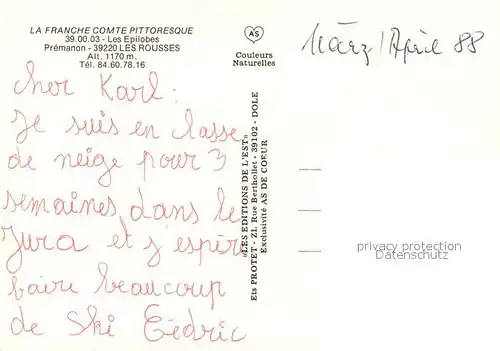 LA FRANCHE COMTE PITTORESQUE
39.00.03 - Les Epilobes
Prémanon - 39220 LES ROUSSES
Alt. 1170 m.
Tél. 84.60.78.16
AS
Couleurs
Naturelles
März/April 88
cher Karl:
Je suis en classe
de neige pour 3
semaines dans le
Jura et j'espère
faire beaucoup
de ski Cédric
«LES EDITIONS DE L'EST»
Ets PROTET - Z.I. Rue Berthollet - 39102 - DOLE
Exclusivité AS DE COEUR
privacy protection
Datenschutz